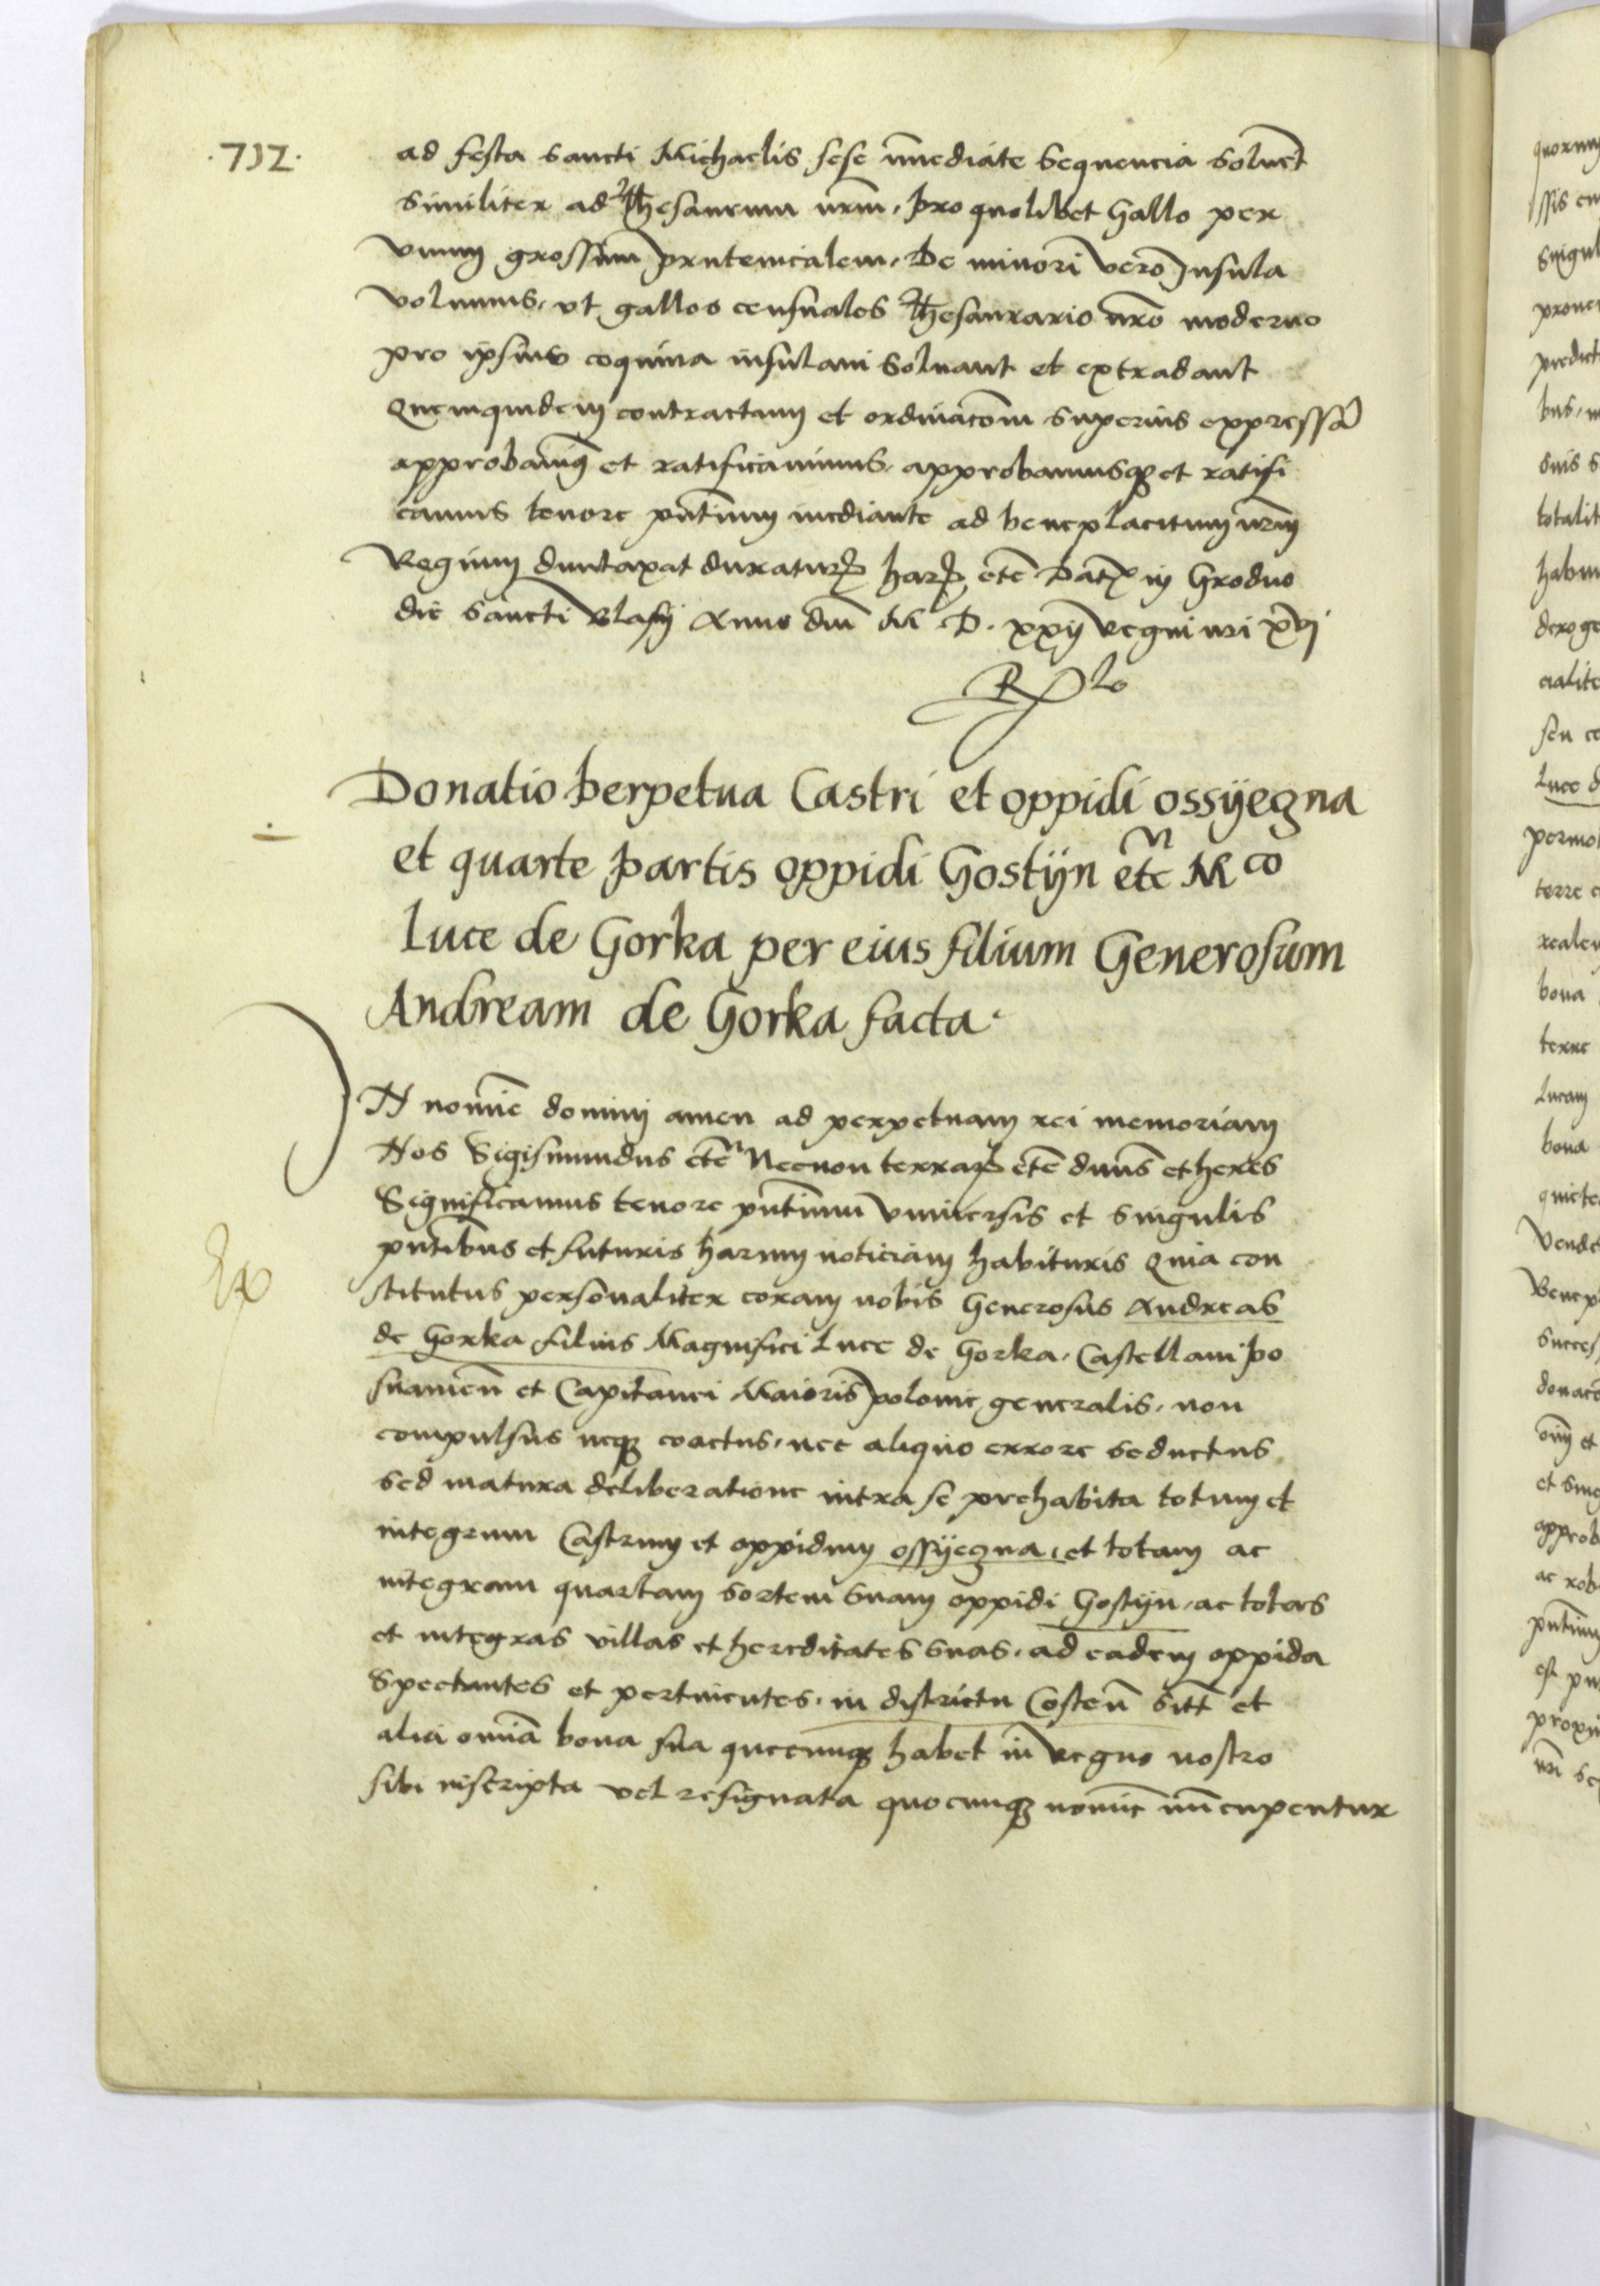 ·712·
ad festa sancti Michaelis sese īmediate sequencia soluēt
similiter ad Thesaurum nr̄m, pro quolibet Gallo per
vnum grossum prutenicalem, De minori vero Insula
volumus, vt gallos censuales Thesaurario nr̄o moderno
pro ipsius coquina insulani soluant et extradant
Quemquidem contractum et ordinacōem superius expressā
approbauimꝰ et ratificauimus, approbamusqꝫ et ratifi
camus tenore pn̄tium mediante ad beneplacitum nr̄m
Regium duntaxat duraturꝝ harꝝ etc̄ Datꝝ in Grodno
die sancti Blasij Anno dn̄i M D. xxij Regni nr̄i xvj
Donatio Perpetua Castri et oppidi ossyegna
et quarte partis oppidi Gostijn etc M co
Luce de Gorka per eius filium Generosum
Andream de Gorka facta.
IN nomīe domini amen ad perpetuam rei memoriam
Nos Sigismundus etc̄ Necnon terrarꝝ etc̄ dn̄us et heres
Significamus tenore pn̄tium vniuersis et singulis
pn̄tibus et futuris harum noticiam habituris Quia con
stitutus personaliter coram nobis Generosus Andreas
de Gorka filius Magnifici Luce de Gorka, Castellani po
snanien̄ et Capitanei Maioris polonie generalis, non
compulsus neqꝫ coactus, nec aliquo errore seductus
sed matura deliberatione intra se prehabita totum et
integrum Castrum et oppidum ossyegna, et totam ac
integram quartam sortem suam oppidi Gostijn, ac totas
et integras villas et hereditates suas, ad eadem oppida
Spectantes et pertinentes, in districtu Costen̄ sitt̄ et
alia omīa bona sua quecunqꝫ habet in Regno nostro
sibi inscripta vel resignata quocunqꝫ nomīe nūcupentur